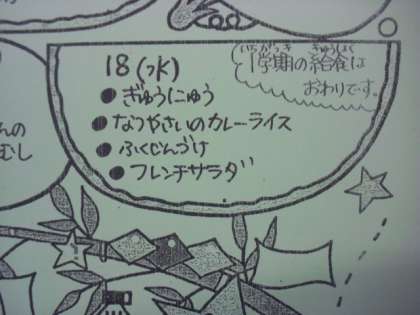 18(水)
●ぎゅうにゅう
●なつやさいのカレーライス
●ふくじんづけ
●フレンチサラダ
いちがっき きゅうしょく
1学期の給食は
おわりです。
んの
むし